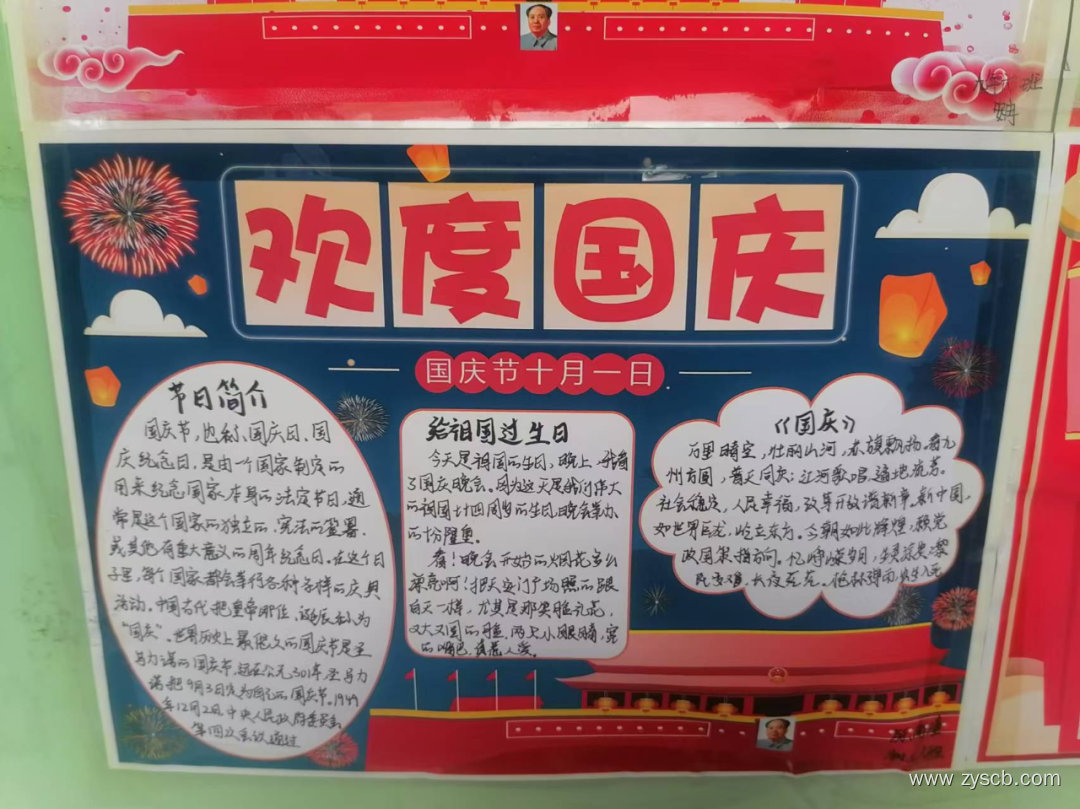 九年 班
欢度国庆
国庆节十月一日
节日简介
国庆节,也称、国庆日、国
庆纪念日,是由一个国家制定的
用来纪念国家本身的法定节日,通
常是这个国家的独立的、宪法的签署、
或其他有重大意义的周年纪念日。在这个日
子里,每个国家都会举行各种各样的庆典
活动。中国古代把皇帝即位、诞辰称为
“国庆”。世界历史上最悠久的国庆节是圣
马力诺的国庆节,远在公元301年,圣马力
诺把9月3日定为自己的国庆节。1949
年12月2日,中央人民政府委员会
第四次会议通过
给祖国过生日
今天是祖国的生日,晚上,我看
了国庆晚会。因为这天是我们伟大
的祖国 周岁的生日,晚会举办
的十分隆重。
看!晚会开始的烟花多么
漂亮啊!把天安门广场照的跟
白天一样,尤其是那笑脸礼花,
又大又圆的 ,两只小眼睛,
的嘴巴,真惹人爱。
《国庆》
万里晴空,壮丽山河,赤旗飘扬。看九
州方圆,普天同庆;江河歌唱,遍地流芳。
社会稳定,人民幸福,改革开放谱新章。新中国,
如世界巨龙,屹立东方。今朝如此辉煌,赖党
政国策指方向。忆峥嵘岁月,
民 难,长夜茫茫。 枪林弹雨,出生入死
www.zyscb.com